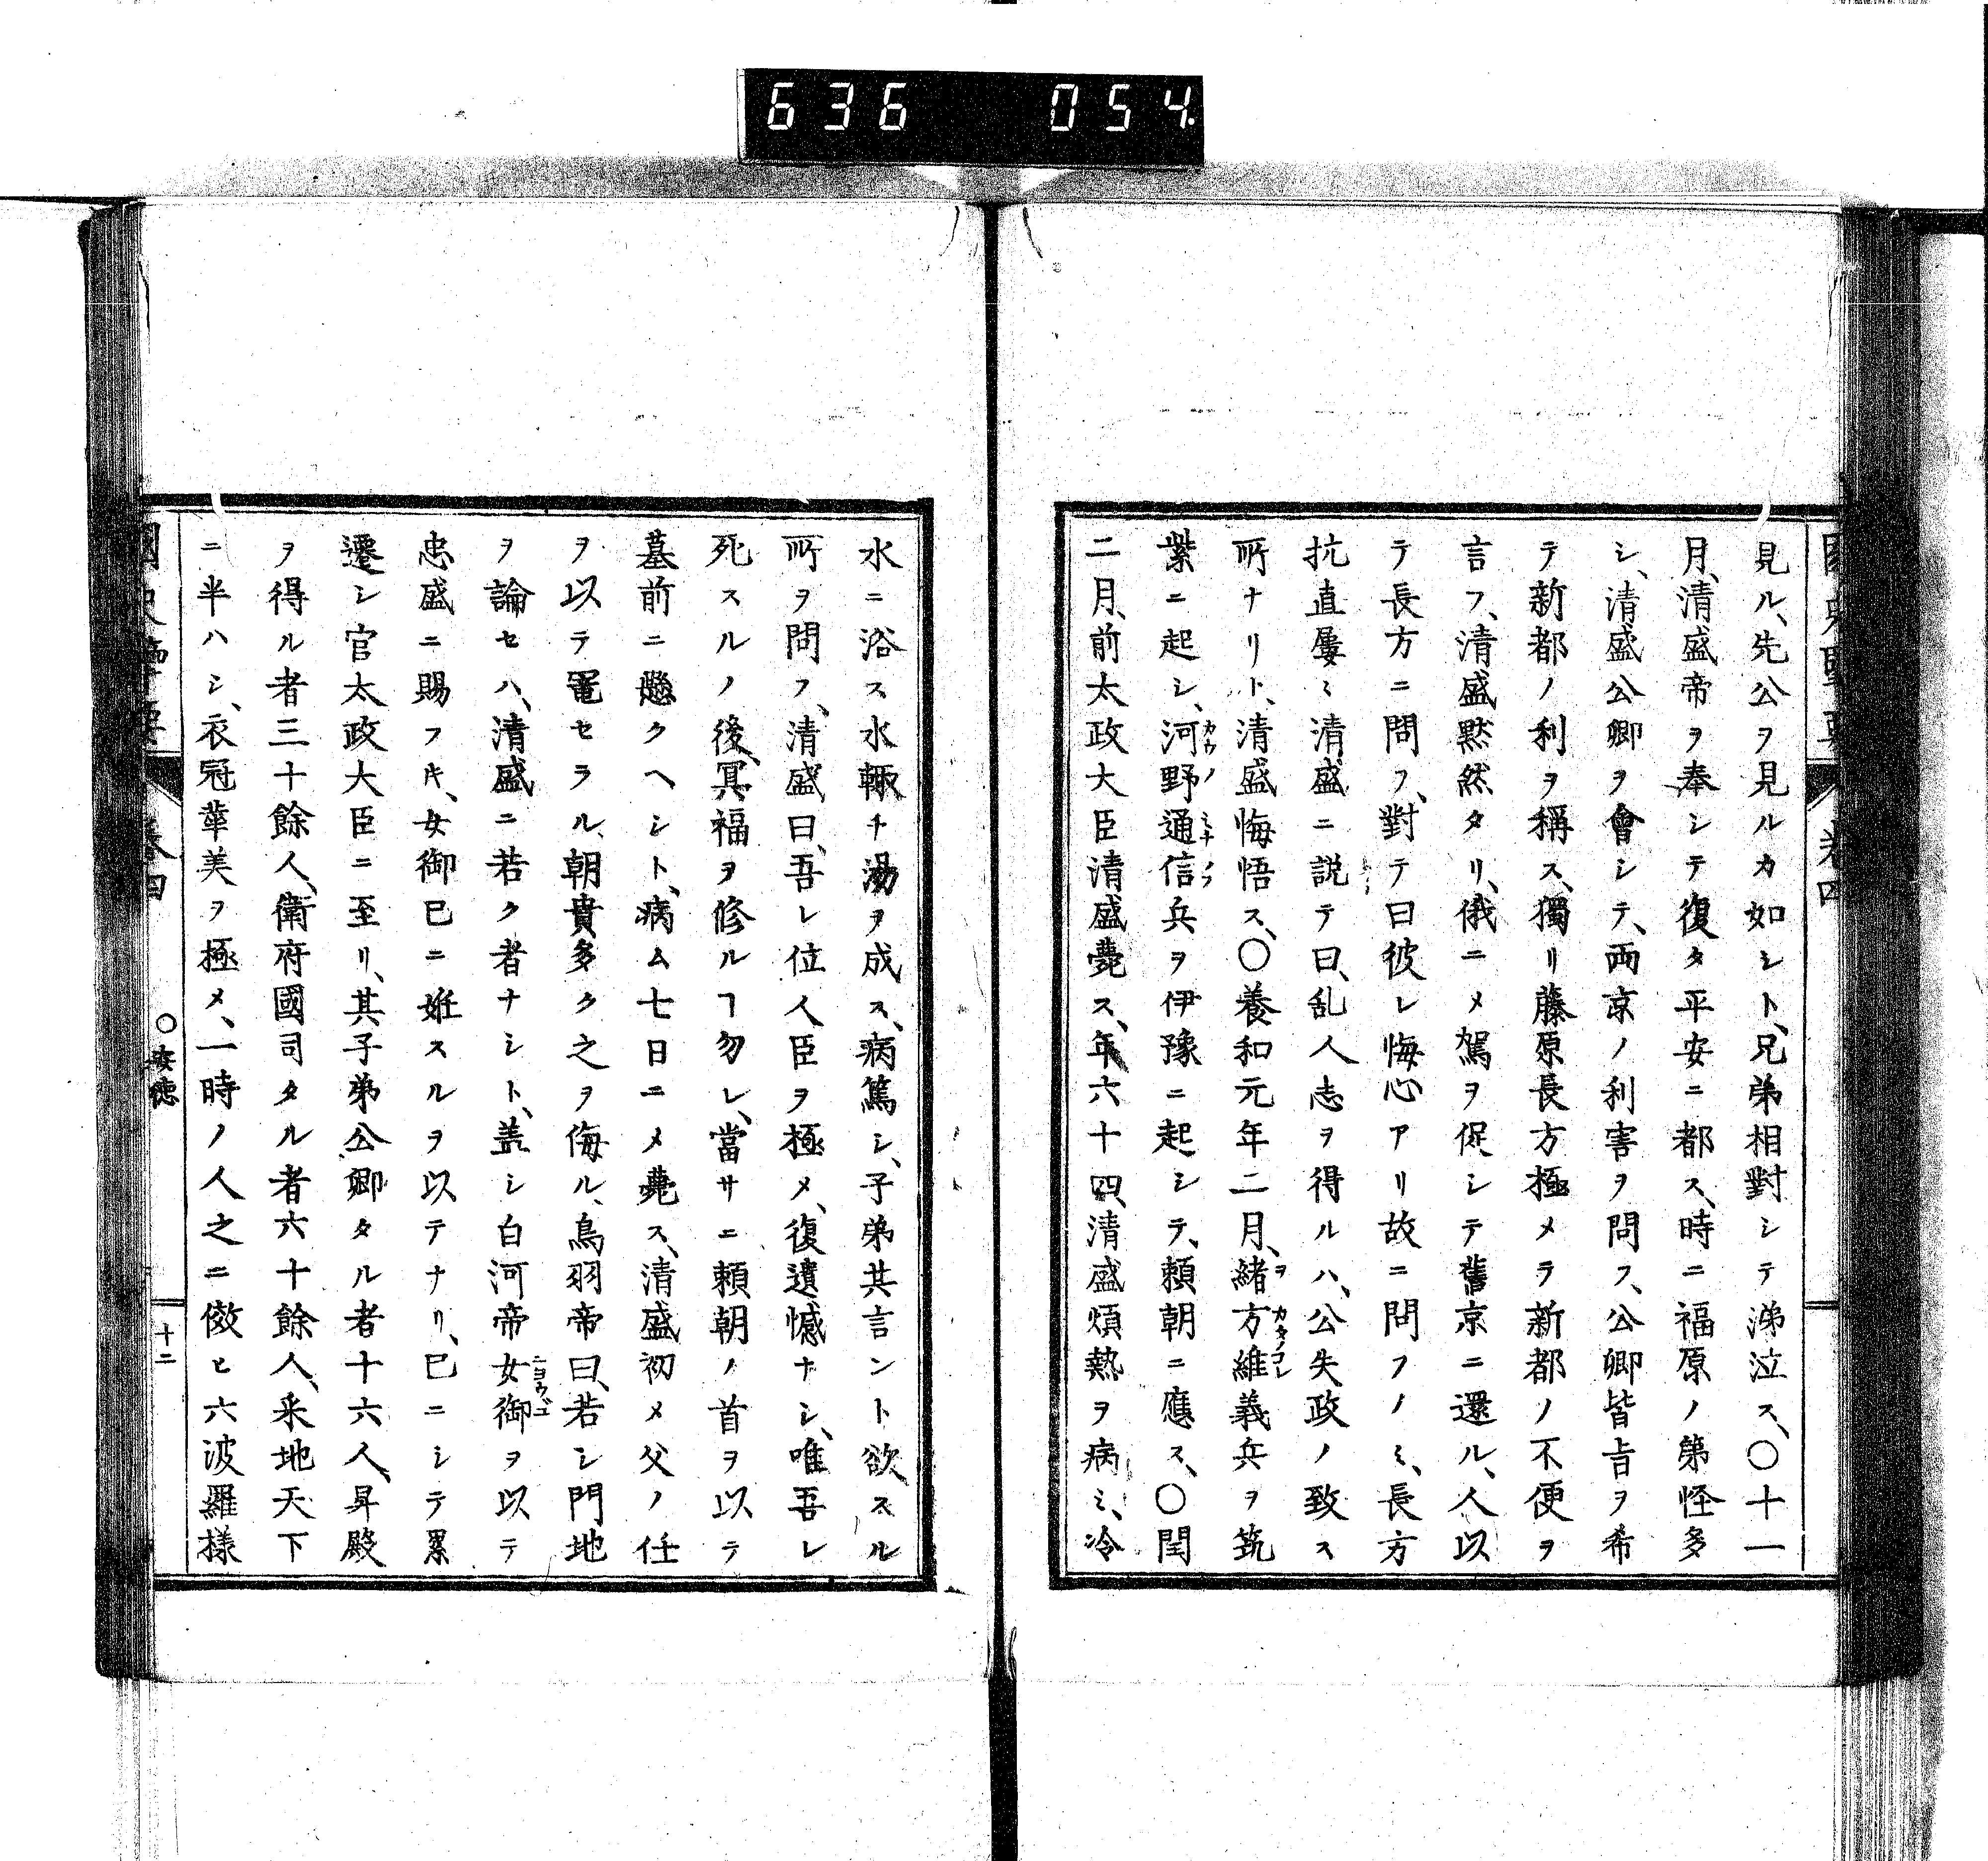 636 054.
見ル、先公ヲ見ルカ如シト、兄弟相對シテ涕泣ス、〇十一
月、清盛帝ヲ奉シテ復タ平安ニ都ス、時ニ福原ノ第怪多
シ、清盛公卿ヲ會シテ、両京ノ利害ヲ問フ、公卿皆旨ヲ希
テ新都ノ利ヲ稱ス、獨リ藤原長方極メテ新都ノ不便ヲ
言フ、清盛黙然タリ、俄ニメ駕ヲ促シテ舊京ニ還ル、人以
テ長方ニ問フ、對テ曰彼レ悔心アリ故ニ問フノミ、長方
抗直屡ミ清盛ニ説テ曰、乱人志ヲ得ルハ、公失政ノ致ス
所ナリト、清盛悔悟ス、〇養和元年二月、緒方維義兵ヲ筑
ヲ カタノコレ
紫ニ起シ、河野通信兵ヲ伊豫ニ起シテ、頼朝ニ應ス、〇閏
カウノ ミチノフ
二月、前太政大臣清盛薨ス、年六十四、清盛煩熱ヲ病ミ、冷
水ニ浴ス水輙チ湯ヲ成ス、病篤シ、子弟其言ント欲スル
所ヲ問フ、清盛曰、吾レ位人臣ヲ極メ、復遺憾ナシ、唯吾レ
死スルノ後、冥福ヲ修ルヿ勿レ、當サニ頼朝ノ首ヲ以テ
墓前ニ懸クヘシト、病ム七日ニメ薨ス、清盛初メ父ノ任
ヲ以テ寵セラル、朝貴多ク之ヲ侮ル、鳥羽帝曰、若シ門地
ヲ論セハ、清盛ニ若ク者ナシト、蓋シ白河帝女御ヲ以テ
ニヨウゴ
忠盛ニ賜フ𪜈、女御已ニ姙スルヲ以テナリ、已ニシテ累
遷シ官太政大臣ニ至リ、其子弟公卿タル者十六人、昇殿
ヲ得ル者三十餘人、衛府國司タル者六十餘人、采地天下
ニ半ハシ、衣冠華美ヲ極メ、一時ノ人之ニ傚ヒ六波羅様
卷四 〇安徳 十二